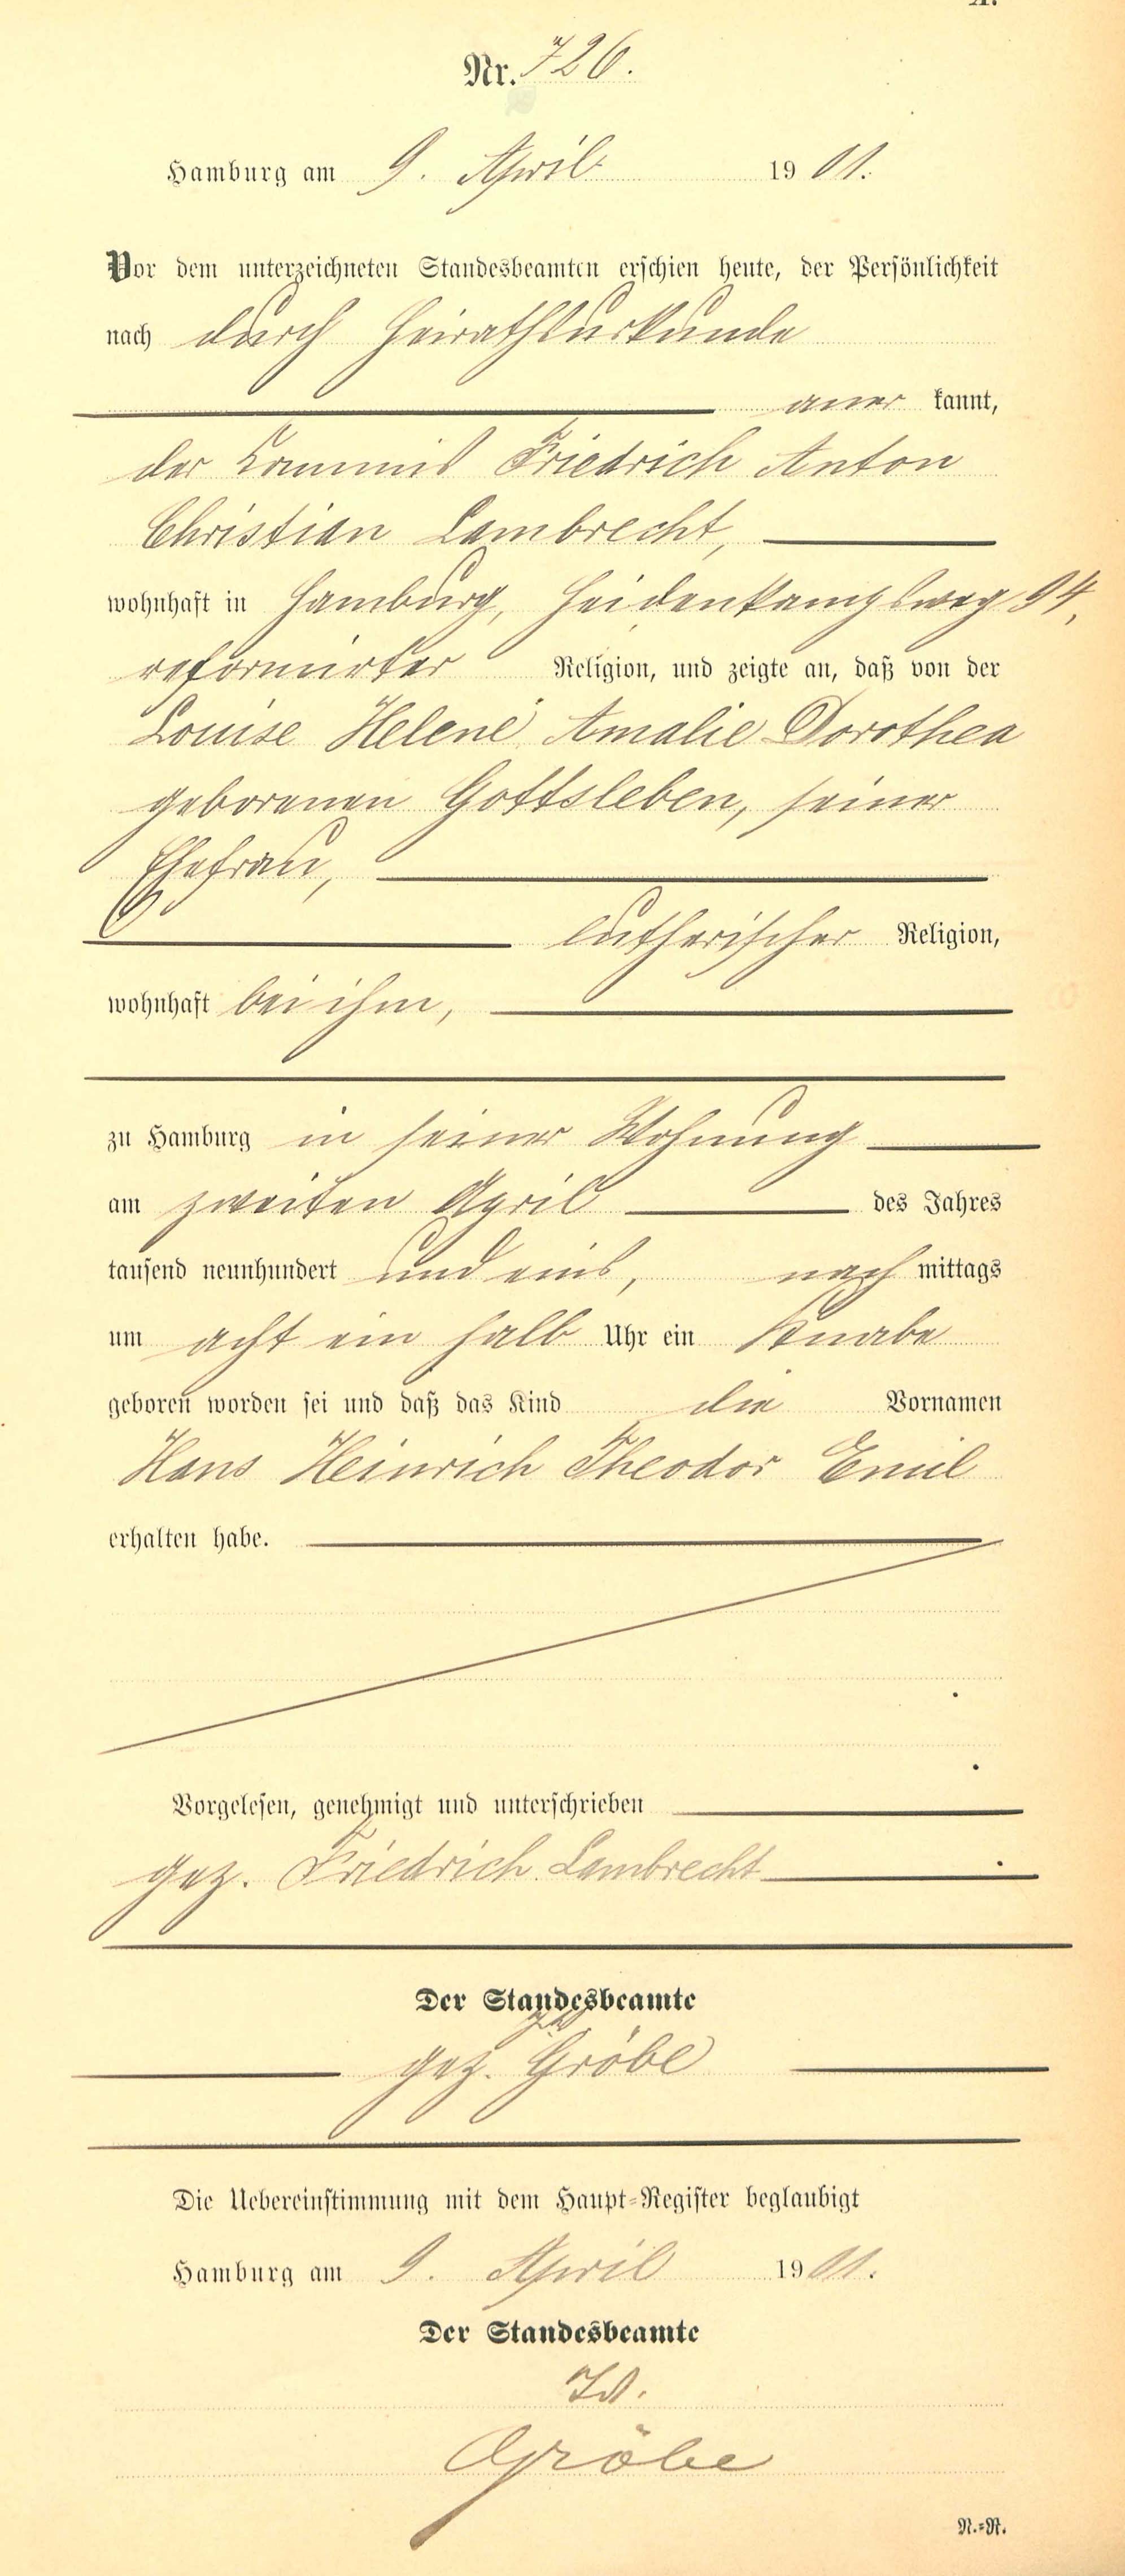 Nr. 726.
Hamburg am 9. April 1901.
Vor dem unterzeichneten Standesbeamten erschien heute, der Persönlichkeit
nach durch Heirathsurkunde
aner kannt,
der Commis Friedrich Anton
Christian Lambrecht,
wohnhaft in Hamburg, Heidenkampsweg 94,
reformirter Religion, und zeigte an, daß von der
Louise Helene Amalie Dorothea
geborenen Gottsleben, seiner
Ehefrau,
lutherischer Religion,
wohnhaft bei ihm,
zu Hamburg in seiner Wohnung
am zweiten April des Jahres
tausend neunhundert und eins, nach mittags
um acht ein halb Uhr ein Knabe
geboren worden sei und daß das Kind die Vornamen
Hans Heinrich Theodor Emil
erhalten habe.
Vorgelesen, genehmigt und unterschrieben
gez. Friedrich Lambrecht
Der Standesbeamte
gez. Gröbe
Die Uebereinstimmung mit dem Haupt-Register beglaubigt
Hamburg am 9. April 1901.
Der Standesbeamte
Gröbe
N.-R.